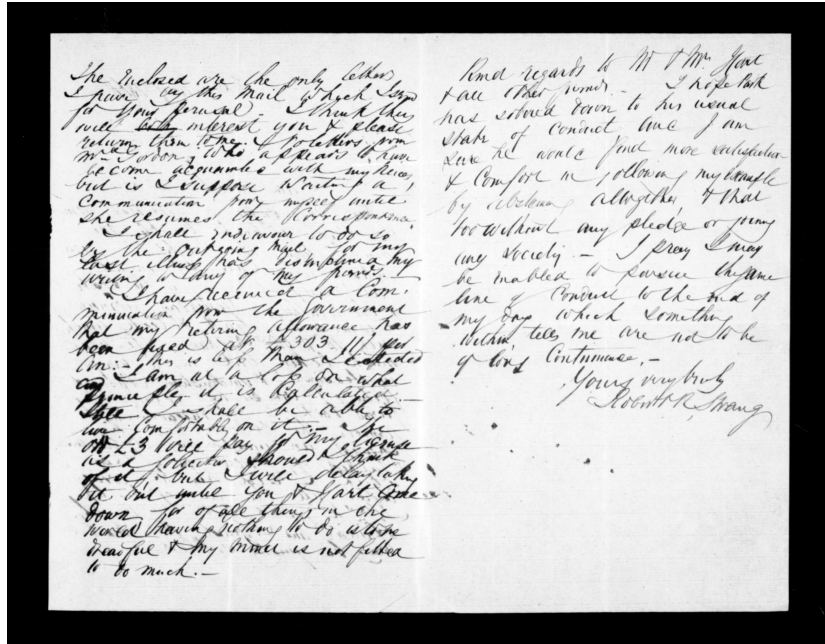 The enclosed are the only letters
I have by this Mail which I send
for your perusal. I think they
will both interest you & please
return them to me. No letters from
Mrs Gordon, who appears to have
become acquainted with my Niece,
but is I suppose waiting a
communication from myself until
she resumes the Correspondence.
I shall endeavour to do so
by the outgoing Mail for my
last illness has disinclined my
writing to any of my friends.
I have received a Com-
munication from the Government
that my retiring allowance has
been fixed at £303 11/ per
An: this is less than I expected
and I am at a loss on what
principle it is Calculated.
Still I shall be able to
live Comfortably on it. The
odd £3 will pay for my license
as a Solicitor should I think
of it, but I will delay taking
it out until you & Hart come
down for of all things in the
world having nothing to do is to me
dreadful & my mind is not fitted
to do much.
Kind regards to Mr & Mrs
& all other friends. I hope Park
has sobered down to his usual
state of conduct and I am
sure he would find more satisfaction
& Comfort in following my example
by abstaining altogether, & that
too without any pledge or joining
any Society. I pray I may
be enabled to pursue the same
line of Conduct to the end of
my days which something
within tells me are not to be
of long Continuance.
Yours very truly
Robert R. Strang